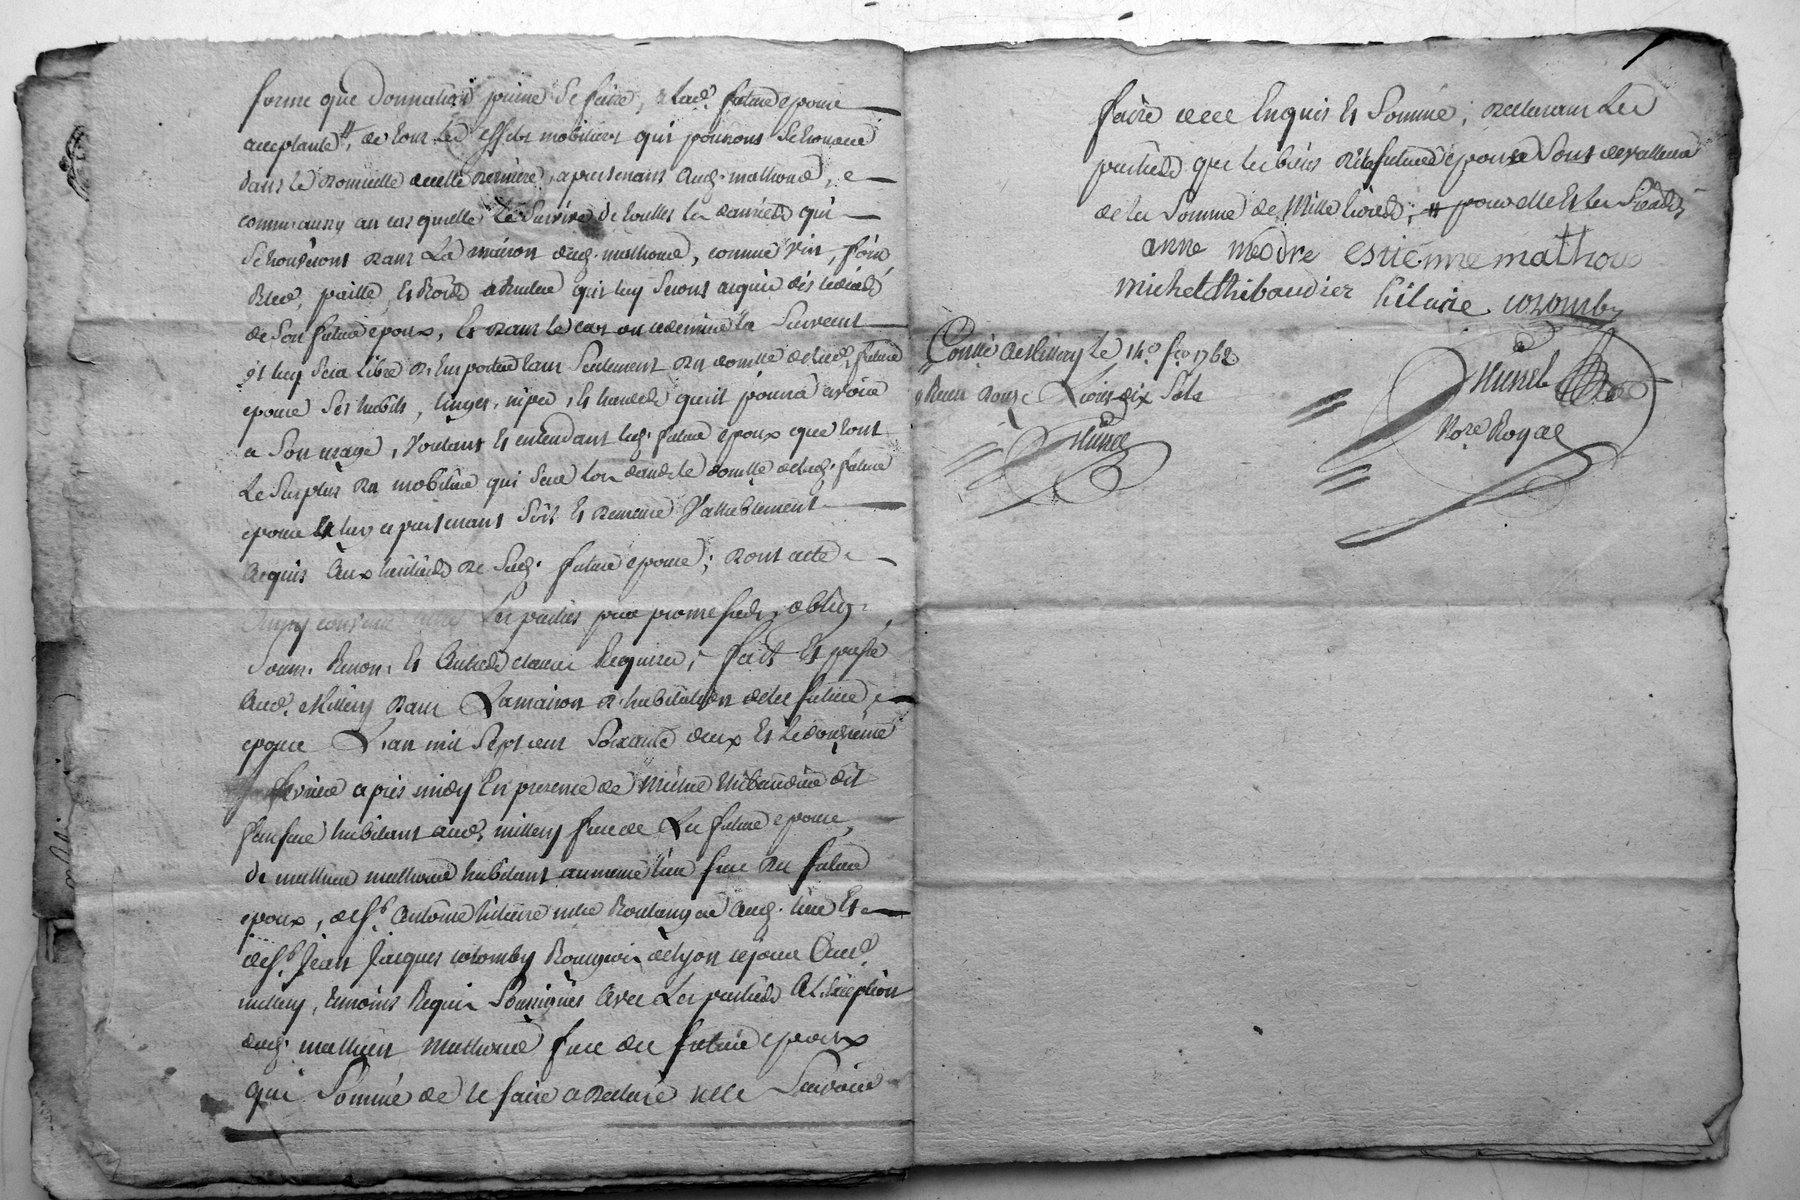 forme que donnation puisse se faire, a lad. future epouse
acceptante, de tous les effets mobiliers qui pourront se trouver
dans le domicille de cette derniere, apartenans aud. mathoud, e
comm' aussy au cas quelle le survive de toutes les danrées qui
se trouveront dans la maison dud. mathoud, comme vin, foin
bled, paille, et
de son futur epoux, et dans le cas ou ce dernier la survecut
il luy sera libre d'emporter tant seulement du domlle de lad. future
epouse ses habits, linges, nipes, et hardes qu'il pourra avoir
a son usage, voulant et entendant led. futur epoux que tout
le surplus du mobilier qui sera lors dans le domlle de lad. future
epouse et luy apartenant soit et demeure
acquis aux heritiers de lad. future epouse; dont acte
Ainsy convenu entre les parties par promesses, oblig.
soum. renon. et autres clauses requises; fait et passé
aud. Millery dans la maison d'habitation de la future
epouse l'an mil sept cent soixante deux et le douzieme
fevrier apres midy en presence de Michel thibaudier dit
fanfare habitant aud. millery frere de la future epouse,
de mathieu mathoud habitant au meme lieu frere du futur
epoux, de sr. Antoine hilaire mtre boulanger aud. lieu et
de sr. Jean Jacques colomby Bourgeois de lyon sejour aud.
millery, temoins requis soussignés avec les parties a l'exception
dud. mathieu mathoud frere du futur epoux
qui sommé de le faire a declaré ne le scavoir
faire de ce enquis et sommé; declarant les
parties que les biens de la future epouse sont de valleur
de la somme de mille livres, pour elle et les siens
anne medre estienne mathoud
michel thibaudier hilaire colomby
Conllé a Millery le 14e. fer. 1762
Reçu douze Livres dix sols
Nore Royal